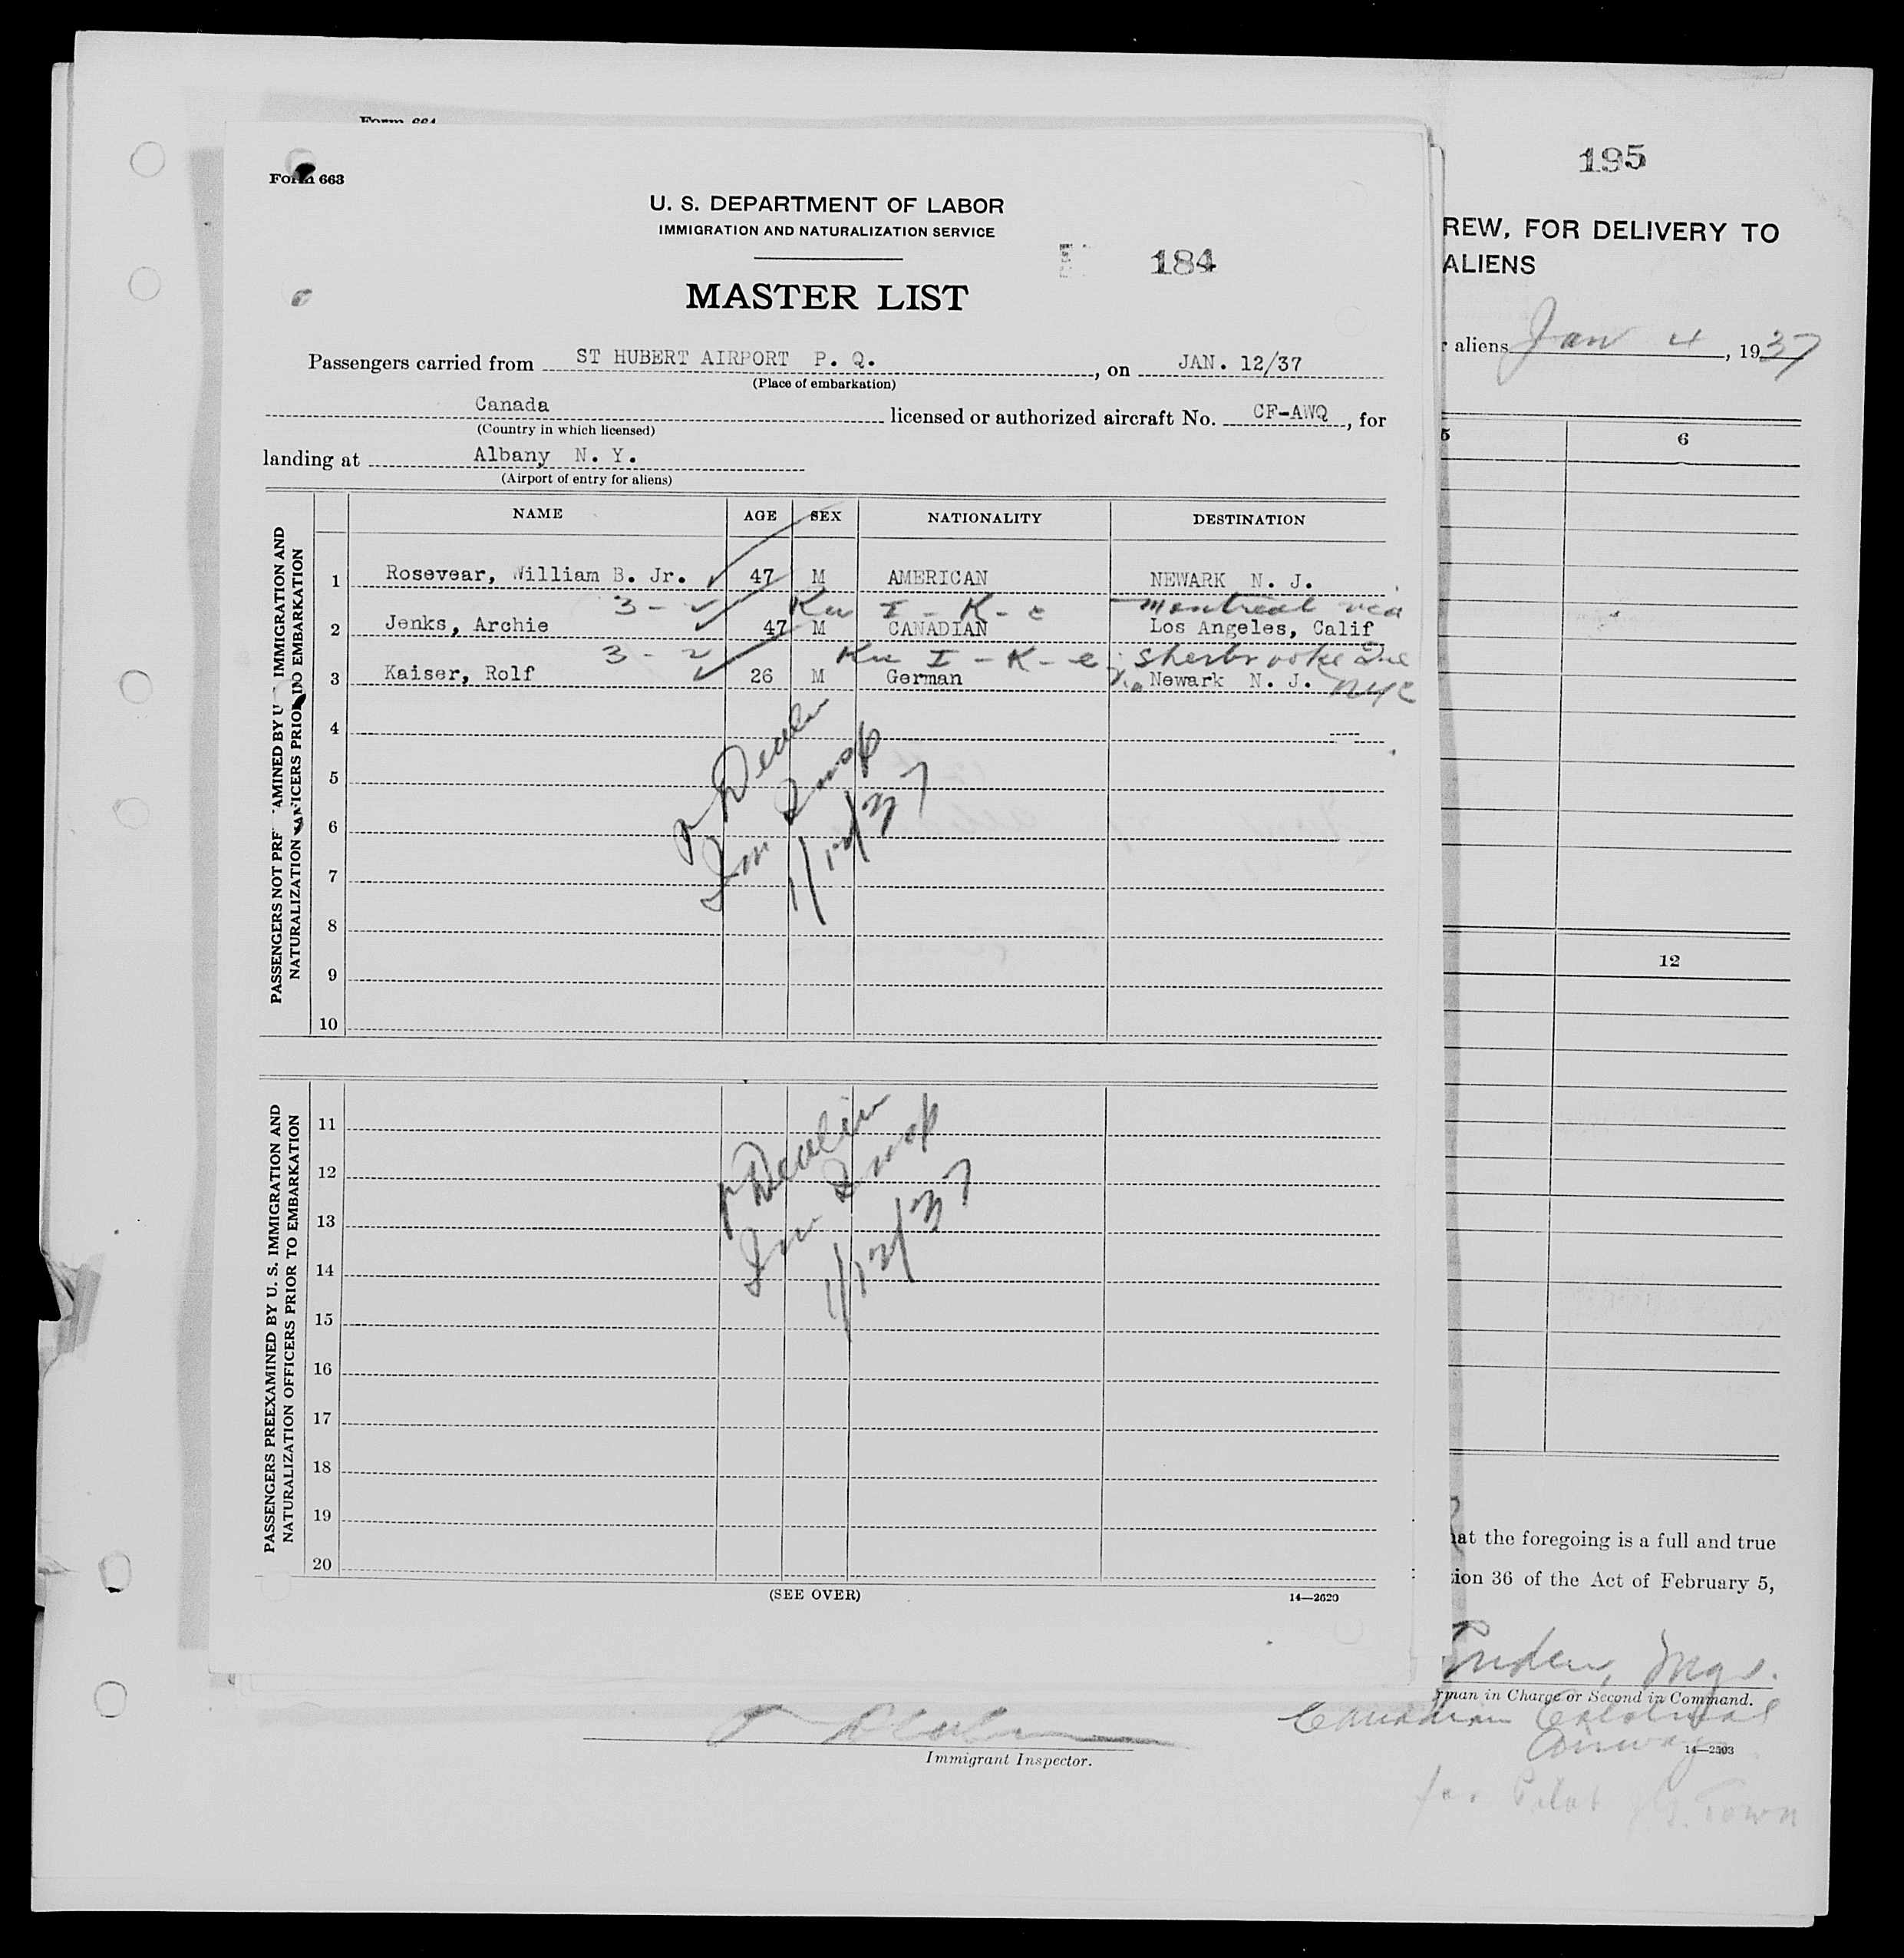 Form 664
Form 663
U. S. DEPARTMENT OF LABOR
IMMIGRATION AND NATURALIZATION SERVICE
184
MASTER LIST
Passengers carried from ST HUBERT AIRPORT P. Q. , on JAN. 12/37
(Place of embarkation)
Canada licensed or authorized aircraft No. CF-AWQ , for
(Country in which licensed)
landing at Albany N. Y.
(Airport of entry for aliens)
PASSENGERS NOT PRE AMINED BY U IMMIGRATION AND
NATURALIZATION ICERS PRIOR TO EMBARKATION
NAME AGE SEX NATIONALITY DESTINATION
1 Rosevear, William B. Jr. 47 M AMERICAN NEWARK N. J.
3 - 2 I - K - e Montreal via
2 Jenks, Archie 47 M CANADIAN Los Angeles, Calif
3 - 2 I - K - e Sherbrooke Que
3 Kaiser, Rolf 26 M German Via Newark N. J. NYC
4
5
6
7
8
9
10
Devlin
Imm Insp
1/12/37
PASSENGERS PREEXAMINED BY U. S. IMMIGRATION AND
NATURALIZATION OFFICERS PRIOR TO EMBARKATION
11
12
13
14
15
16
17
18
19
20
Devlin
Imm Insp
1/12/37
(SEE OVER)
14—2620
Immigrant Inspector.
195
REW, FOR DELIVERY TO
ALIENS
r aliens Jan 4 , 1937
5 6
12
hat the foregoing is a full and true
tion 36 of the Act of February 5,
Mgr.
rman in Charge or Second in Command.
Canadian Colonial
Airways
14—2503
for Pilot Town